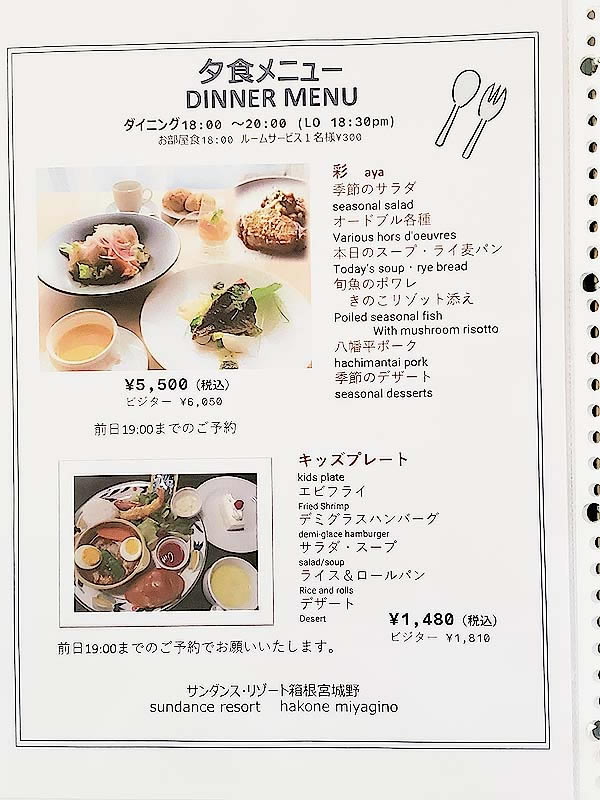 夕食メニュー
DINNER MENU
ダイニング18:00 ～20:00 (LO 18:30pm)
お部屋食18:00 ルームサービス1名様¥300
彩 aya
季節のサラダ
seasonal salad
オードブル各種
Various hors d'oeuvres
本日のスープ・ライ麦パン
Today's soup・rye bread
旬魚のポワレ
きのこリゾット添え
Poiled seasonal fish
With mushroom risotto
八幡平ポーク
hachimantai pork
季節のデザート
seasonal desserts
¥5,500 (税込)
ビジター ¥6,050
前日19:00までのご予約
キッズプレート
kids plate
エビフライ
Fried Shrimp
デミグラスハンバーグ
demi-glace hamburger
サラダ・スープ
salad/soup
ライス＆ロールパン
Rice and rolls
デザート
Desert
¥1,480 (税込)
ビジター ¥1,810
前日19:00までのご予約でお願いいたします。
サンダンス・リゾート箱根宮城野
sundance resort hakone miyagino